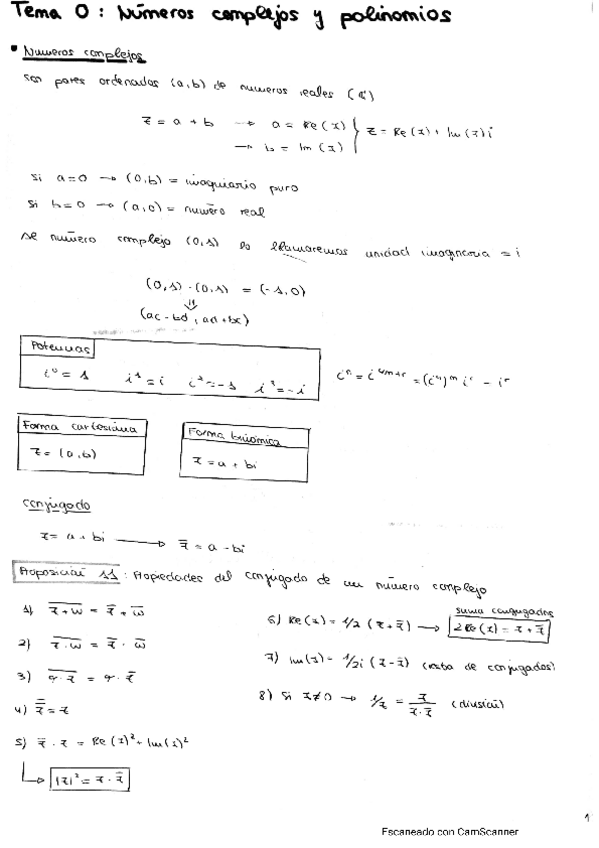 Tema 0: Números complejos y polinomios
Numeros complejos
son pares ordenados (a,b) de numeros reales (ℂ)
z = a + b → a = Re(z)
→ b = Im(z)
z = Re(z) + Im(z)i
Si a=0 → (0,b) = imaginario puro
Si b=0 → (a,0) = número real
Al número complejo (0,1) lo llamaremos unidad imaginaria = i
(0,1)·(0,1) = (-1,0)
(ac-bd, ad+bc)
Potencias
i⁰ = 1 i¹ = i i² = -1 i³ = -i
iⁿ = i⁴ᵐ⁺ʳ = (i⁴)ᵐ iʳ = iʳ
Forma cartesiana
z = (a,b)
Forma binómica
z = a + bi
conjugado
z = a + bi → z̅ = a - bi
Proposición 1.1: Propiedades del conjugado de un número complejo
1) \overline{z+w} = z̅ + w̅
2) \overline{z·w} = z̅ · w̅
3) \overline{r·z} = r · z̅
4) \overline{z̅} = z
5) z̅ · z = Re(z)² + Im(z)²
|z|² = z · z̅
suma conjugados
6) Re(z) = 1/2 (z + z̅) → 2Re(z) = z + z̅
7) Im(z) = 1/2i (z - z̅) (resta de conjugados)
8) Si z≠0 → 1/z = z̅/(z·z̅) (división)
1
Escaneado con CamScanner